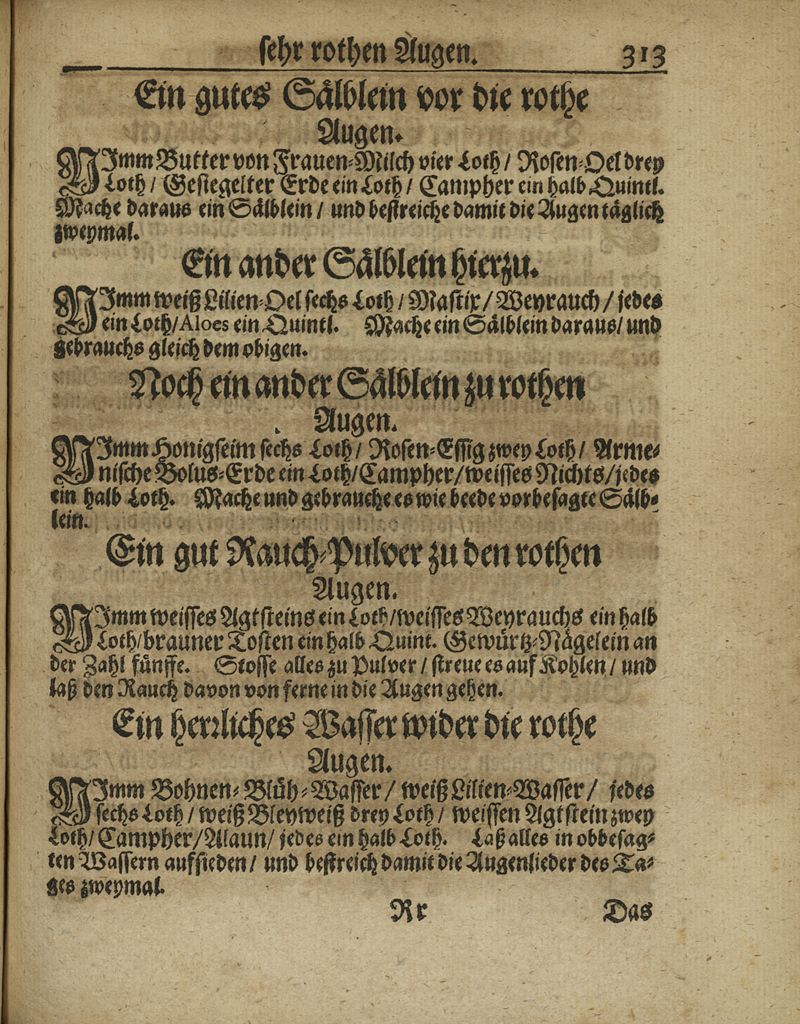 sehr rothen Augen. 313
Ein gutes Sälblein vor die rothe
Augen.
NImm Butter von Frauen-Milch vier Loth / Rosen-Oel drey
Loth / Gesiegelter Erde ein Loth / Campher ein halb Quintl.
Mache daraus ein Sälblein / und bestreiche damit die Augen täglich
zweymal.
Ein ander Sälblein hierzu.
NImm weiß Lilien-Oel sechs Loth / Mastix / Weyrauch / jedes
ein Loth / Aloes ein Quintl. Mache ein Sälblein daraus / und
gebrauchs gleich dem obigen.
Noch ein ander Sälblein zu rothen
Augen.
NImm Honigseim sechs Loth / Rosen-Essig zwey Loth / Arme-
nische Bolus-Erde ein Loth / Campher / weisses Nichts / jedes
ein halb Loth. Mache und gebrauche es wie beede vorbesagte Sälb-
lein.
Ein gut Rauch-Pulver zu den rothen
Augen.
NImm weisses Agtsteins ein Loth / weisses Weyrauchs ein halb
Loth / brauner Tosten ein halb Quint. Gewürtz-Nägelein an
der Zahl fünffe. Stosse alles zu Pulver / streue es auf Kohlen / und
laß den Rauch davon von ferne in die Augen gehen.
Ein herrliches Wasser wider die rothe
Augen.
NImm Bohnen-Blüh-Wasser / weiß Lilien-Wasser / jedes
sechs Loth / weiß Bleyweiß drey Loth / weissen Agtstein zwey
Loth / Campher / Alaun / jedes ein halb Loth. Laß alles in obbesag-
ten Wassern aufsieden / und bestreich damit die Augenlieder des Ta-
ges zweymal.
Rr Das